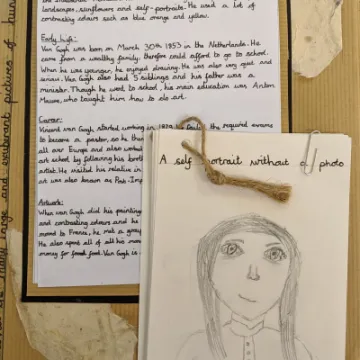 landscapes, sunflowers and self-portraits". He used a lot of
contrasting colours such as blue, orange and yellow.
Early life:
Van Gogh was born on March 30th 1853 in the Netherlands. He
came from a wealthy family, therefore could afford to go to school.
When he was younger, he enjoyed drawing. He was also very quiet and
serious. Van Gogh also had 5 siblings and his father was a
minister. Though he went to school, his main education was Anton
Mauve, who taught him how to do art.
Career:
Vincent van Gogh started working in the required exams
to become a pastor, as he
all over Europe and also worked
art school by following his
artist. He visited his relative in
art was also known as Post-Imp
Artwork:
When van Gogh did his painting
and contrasting colours and he
moved to France, he met a
He also spent all of his mon
money for food. Van Gogh is
A self portrait without a photo
large and exuberant pictures of